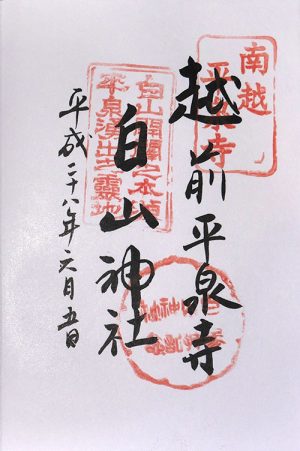 越前 平泉寺
白山神社
平成二十八年六月五日
南越
平泉寺
白山開闢之本境
平泉湧出之靈地